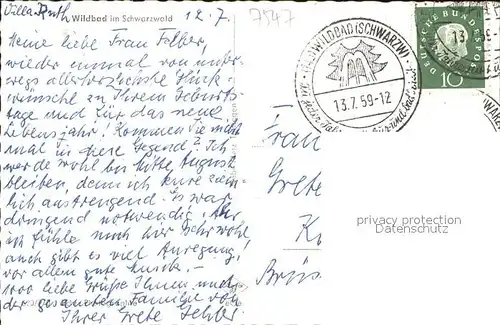 Villa Ruth
Wildbad im Schwarzwald
12.7.
7547
Meine liebe Frau Felber,
wieder einmal von unter-
wegs allerherzlichste Glück-
wünsche zu Ihrem Geburts-
tage und für das neue
Lebensjahr! Kommen Sie nicht
mal in diese Gegend? Ich
werde wohl bis Mitte August
bleiben, denn ich kure ziem-
lich anstrengend. Es war
dringend notwendig. Aber
ich fühle mich hier sehr wohl
auch gibt es viel Anregung,
vor allem gute Musik. –
1000 liebe Grüße Ihnen und
der gesamten Familie von
Ihrer Grete
WILDBAD (SCHWARZW)
13.7.59-12
DEUTSCHE BUNDESPOST
10
13.
Frau
Grete
K
Brüs
privacy protection
Datenschutz